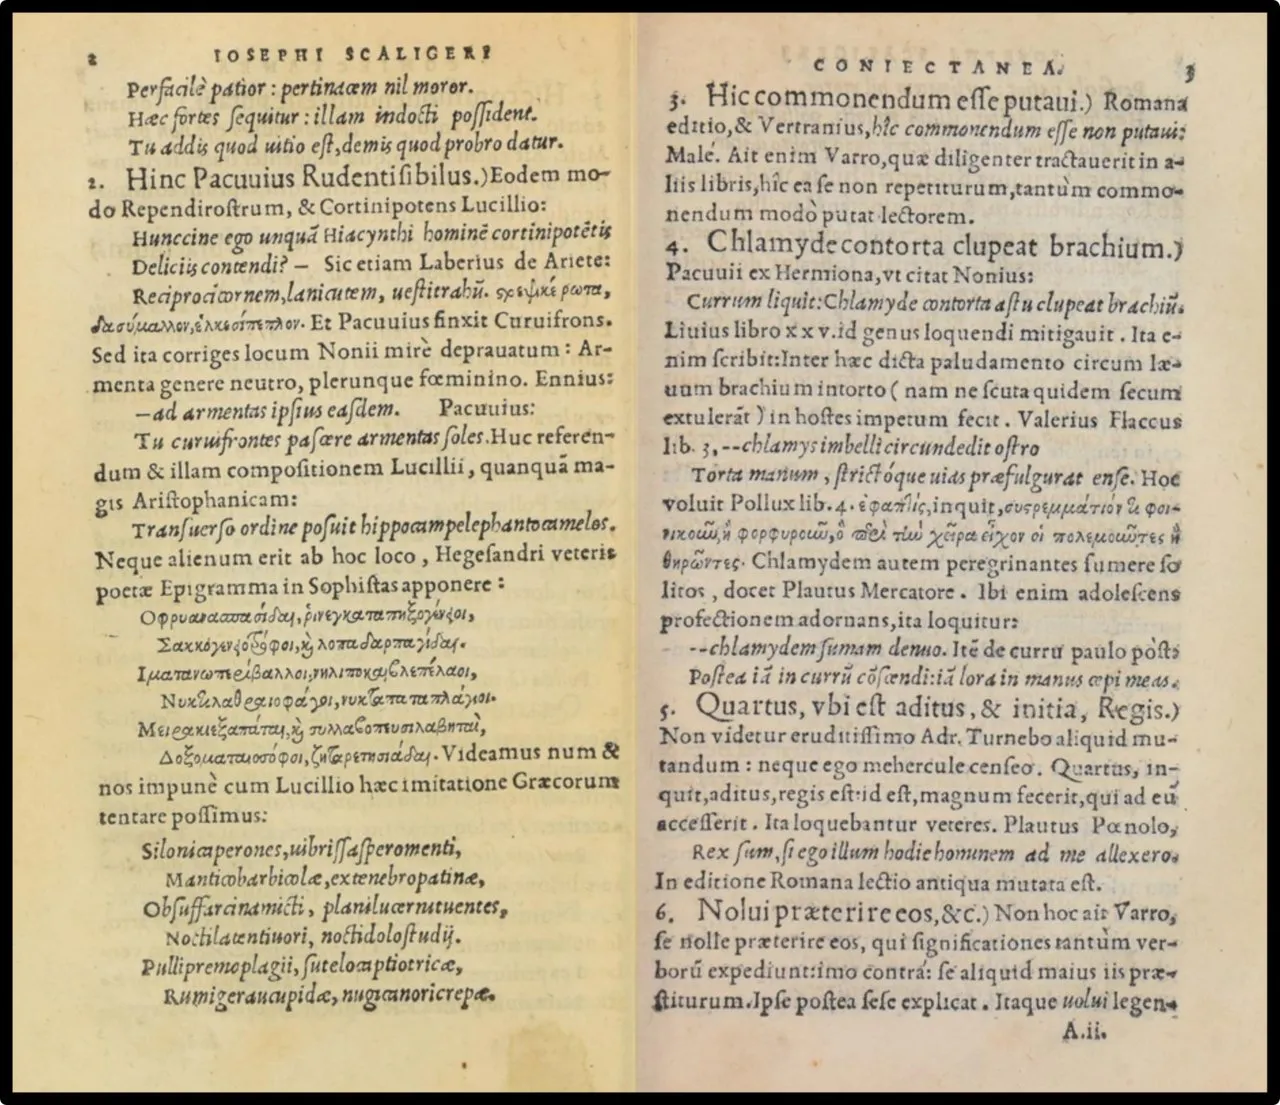 2 IOSEPHI SCALIGERI
Perfacilè patior : pertinacem nil moror.
Hæc fortes sequitur : illam indocti possident.
Tu addis quod uitio est,demis quod probro datur.
2. Hinc Pacuuius Rudentisibilus.) Eodem mo-
do Rependirostrum, & Cortinipotens Lucillio:
Hunccine ego unquã Hiacynthi hominẽ cortinipotẽtis
Deliciis contendi? — Sic etiam Laberius de Ariete:
Reciprocicornem,lanicutem, uestitrahũ. ςρεψικέρωτα,
δασύμαλλον,ἑλκεσίπεπλον. Et Pacuuius finxit Curuifrons.
Sed ita corriges locum Nonii mirè deprauatum : Ar-
menta genere neutro, plerunque fœminino. Ennius:
—ad armentas ipsius easdem. Pacuuius:
Tu curuifrontes pascere armentas soles.Huc referen-
dum & illam compositionem Lucillii, quanquã ma-
gis Aristophanicam:
Transuerso ordine posuit hippocampelephantocamelos.
Neque alienum erit ab hoc loco , Hegesandri veteris
poetæ Epigramma in Sophistas apponere :
Οφρυανασπασίδαι,ῥινεγκαταπηξογένειοι,
Σακκογενειοτρόφοι,ϗ λοπαδαρπαγίδαι.
Ιματανωπερίβαλλοι,νηλιποκαιβλεπέλαιοι,
Νυκτιλαθραιοφάγοι,νυκταταπαπλάγιοι.
Μειρακιεξαπάται,ϗ συλλαβοπευσιλαβηταὶ,
Δοξοματαιοσόφοι,ζηταρετησιάδαι. Videamus num &
nos impunè cum Lucillio hæc imitatione Græcorum
tentare possimus:
Silonicaperones,uibrissasperomenti,
Manticobarbicolæ,extenebropatinæ,
Obsuffarcinamicti, planilucernituentes,
Noctilatentiuori, noctidolostudij.
Pullipremoplagii,sutelocaptiotricæ,
Rumigeraucupidæ, nugicanoricrepæ.
CONIECTANEA. 3
3. Hic commonendum esse putaui.) Romana
editio,& Vertranius,hîc commonendum esse non putaui:
Malè. Ait enim Varro,quæ diligenter tractauerit in a-
liis libris,hîc ea se non repetiturum,tantùm commo-
nendum modò putat lectorem.
4. Chlamyde contorta clupeat brachium.)
Pacuuii ex Hermiona,vt citat Nonius:
Currum liquit:Chlamyde contorta astu clupeat brachiũ.
Liuius libro xxv.id genus loquendi mitigauit . Ita e-
nim scribit:Inter hæc dicta paludamento circum læ-
uum brachium intorto ( nam ne scuta quidem secum
extulerãt ) in hostes impetum fecit . Valerius Flaccus
lib. 3, --chlamys imbelli circundedit ostro
Torta manum , strictóque uias præfulgurat ense. Hoc
voluit Pollux lib. 4. ἐφαπλὶς,inquit,συςρεμμάτιόν τι φοι-
νικοιῶ,ἢ φορφυροιῶ,ὃ πεὶ τὴν χεῖρα εἶχον οἱ πολεμοιῶτες ἢ
θηρῶντες. Chlamydem autem peregrinantes sumere so
litos , docet Plautus Mercatore . Ibi enim adolescens
profectionem adornans,ita loquitur:
--chlamydem sumam denuo. Itẽ de curru paulo pòst:
Postea iã in currũ cõscendi:iã lora in manus cepi meas.
5. Quartus, vbi est aditus, & initia, Regis.)
Non videtur eruditissimo Adr. Turnebo aliquid mu-
tandum : neque ego mehercule censeo. Quartus, in-
quit,aditus,regis est:id est,magnum fecerit,qui ad eũ
accesserit . Ita loquebantur veteres. Plautus Pœnolo,
Rex sum,si ego illum hodie hominem ad me allexero.
In editione Romana lectio antiqua mutata est.
6. Nolui præterire eos,&c.) Non hoc ait Varro,
se nolle præterire eos, qui significationes tantùm ver-
borũ expediunt:imo contrà: se aliquid maius iis præ-
stiturum.Ipse postea sese explicat . Itaque uolui legen-
A.ii.